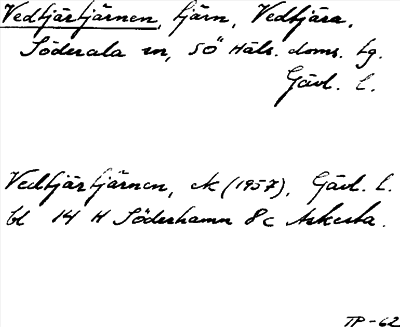 Vedtjärtjärnen, tjärn, Vedtjära.
Söderala sn, SÖ Häls. doms. tg.
Gävl. l.
Vedtjärtjärnen, ek (1957), Gävl. l.
bl 14 H Söderhamn 8c Askesta.
TP-62